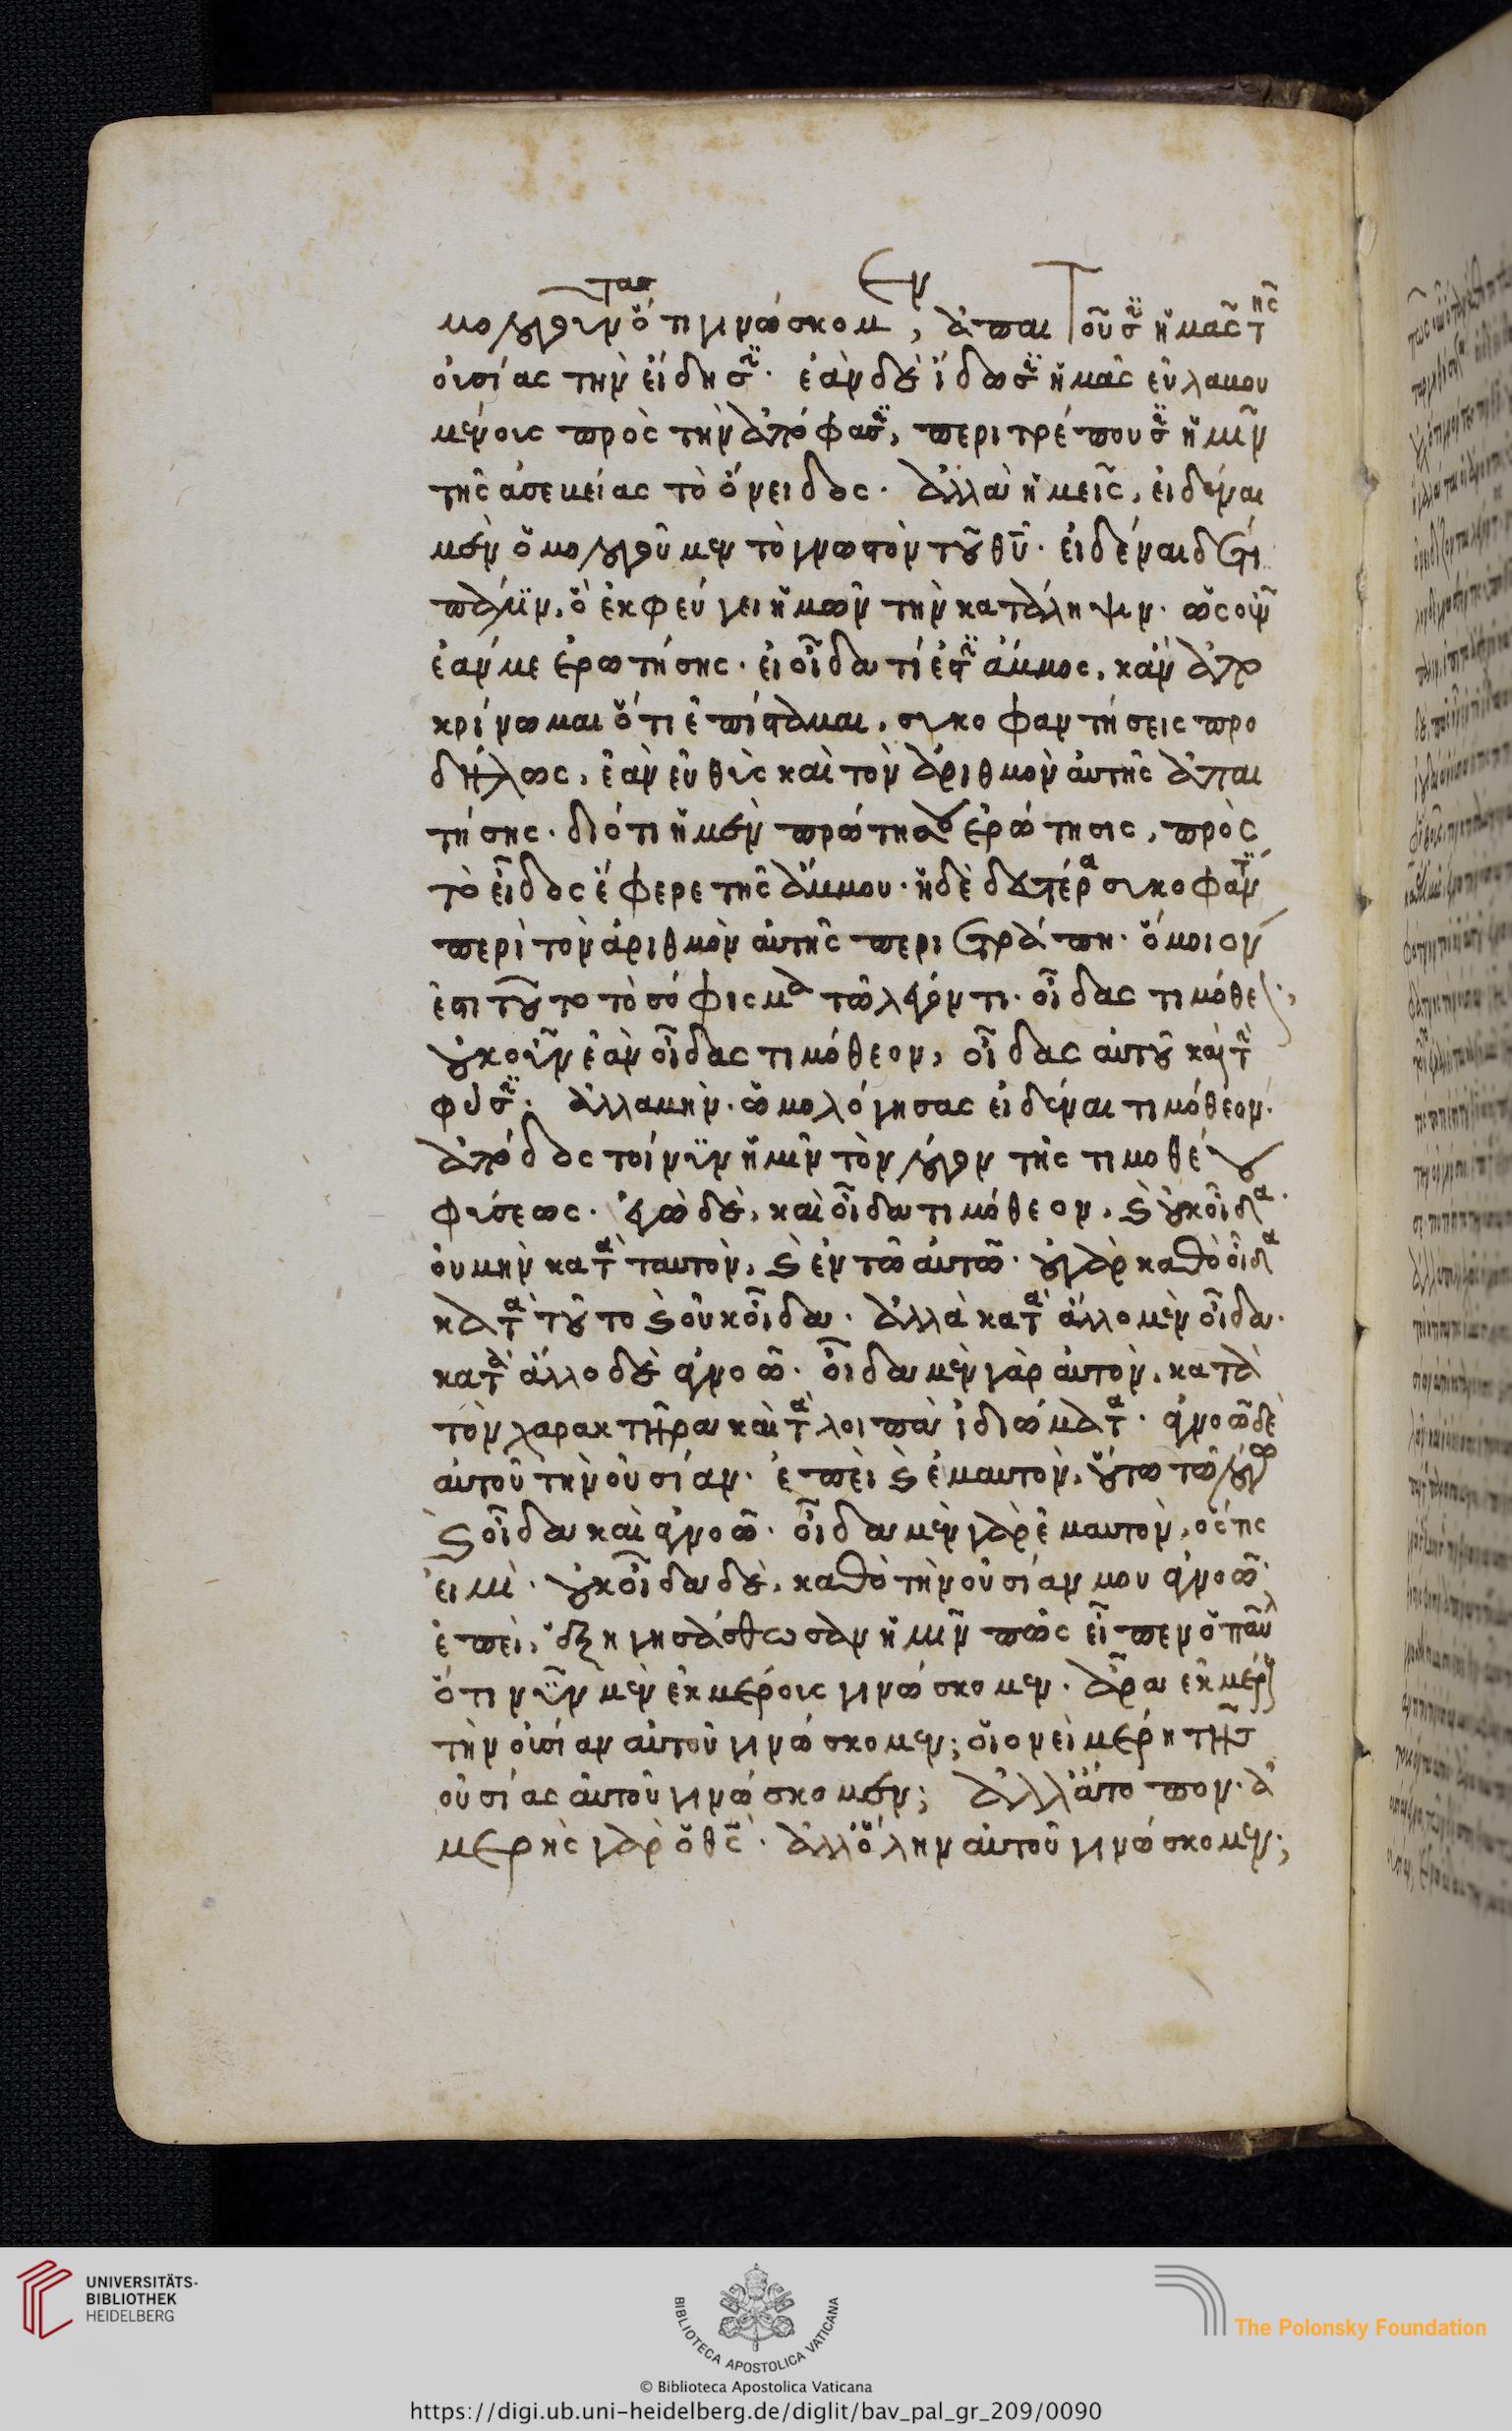 μολογεῖν ὅτι γινώσκομεν, ἀπαιτοῦσιν ἡμᾶς τῆς
οὐσίας τὴν εἴδησιν. ἐὰν δὲ ἴδωσιν ἡμᾶς εὐλαβου
μένους πρὸς τὴν ἀπόφασιν, περιτρέπουσιν ἡμῖν
τῆς ἀσεβείας τὸ ὄνειδος. ἀλλὰ ἡμεῖς, εἰδέναι
μὲν ὁμολογοῦμεν τὸ γνωστὸν τοῦ θῡ. εἰδέναι δέ τι
πάλιν, ὃ ἐκφεύγει ἡμῶν τὴν κατάληψιν. ὡς οὖν
ἐάν με ἐρωτήσης. εἰ οἶδα τί ἐστιν ἄμμος, κἂν ἀπο
κρίνωμαι ὅτι ἐπίσταμαι, συκοφαντήσεις προ
δήλως, ἐὰν εὐθὺς καὶ τὸν ἀριθμὸν αὐτῆς ἀπαι
τήσης. διότι ἡ μὲν πρώτη σου ἐρώτησις, πρὸς
τὸ εἶδος ἔφερε τῆς ἄμμου. ἡ δὲ δευτέρα συκοφαντί
περὶ τὸν ἀριθμὸν αὐτῆς περιετράπη. ὅμοιον
ἐστι τοῦτο τὸ σόφισμα τῶ λέγοντι. οἶδας τιμόθεον;
οὐκοῦν ἐὰν οἶδας τιμόθεον, οἶδας αὐτοῦ καὶ τὴν
φύσιν. ἀλλὰ μὴν. ὡμολόγησας εἰδέναι τιμόθεον.
ἀπόδος τοίνυν ἡμῖν τὸν λόγον τῆς τιμοθέου
φύσεως. ἐγὼ δὲ, καὶ οἶδα τιμόθεον, καὶ οὐκ οἶδα.
οὐ μὴν κατὰ ταυτὸν, καὶ ἐν τῶ αὐτῶ. οὐ γὰρ καθὸ οἶδα
κατὰ τοῦτο καὶ οὐκ οἶδα. ἀλλὰ κατὰ ἄλλο μὲν οἶδα.
κατὰ ἄλλο δὲ ἀγνοῶ. οἶδα μὲν γὰρ αὐτὸν, κατὰ
τὸν χαρακτῆρα καὶ τὰ λοιπὰ ἰδιώματα. ἀγνοῶ δὲ
αὐτοῦ τὴν οὐσίαν. ἐπεὶ καὶ ἐμαυτὸν, οὕτω τῶ λόγω
καὶ οἶδα καὶ ἀγνοῶ. οἶδα μὲν γὰρ ἐμαυτὸν, ὅστις
εἰμὶ. οὐκ οἶδα δὲ, καθὸ τὴν οὐσίαν μου ἀγνοῶ.
ἐπεὶ, ἐξηγησάσθωσαν ἡμῖν πῶς εἶπεν ὁ παῦλ
ὅτι νῦν μὲν ἐκ μέρους γινώσκομεν. ἆρα ἐκ μέρους
τὴν οὐσίαν αὐτοῦ γινώσκομεν; οἱονεὶ μέρη τῆς
οὐσίας αὐτοῦ γινώσκομεν; ἀλλ' ἄτοπον. ἀ
μερὴς γὰρ ὁ θς̄. ἀλλ' ὅλην αὐτοῦ γινώσκομεν;
UNIVERSITÄTS-
BIBLIOTHEK
HEIDELBERG
BIBLIOTECA APOSTOLICA VATICANA
The Polonsky Foundation
© Biblioteca Apostolica Vaticana
https://digi.ub.uni-heidelberg.de/diglit/bav_pal_gr_209/0090